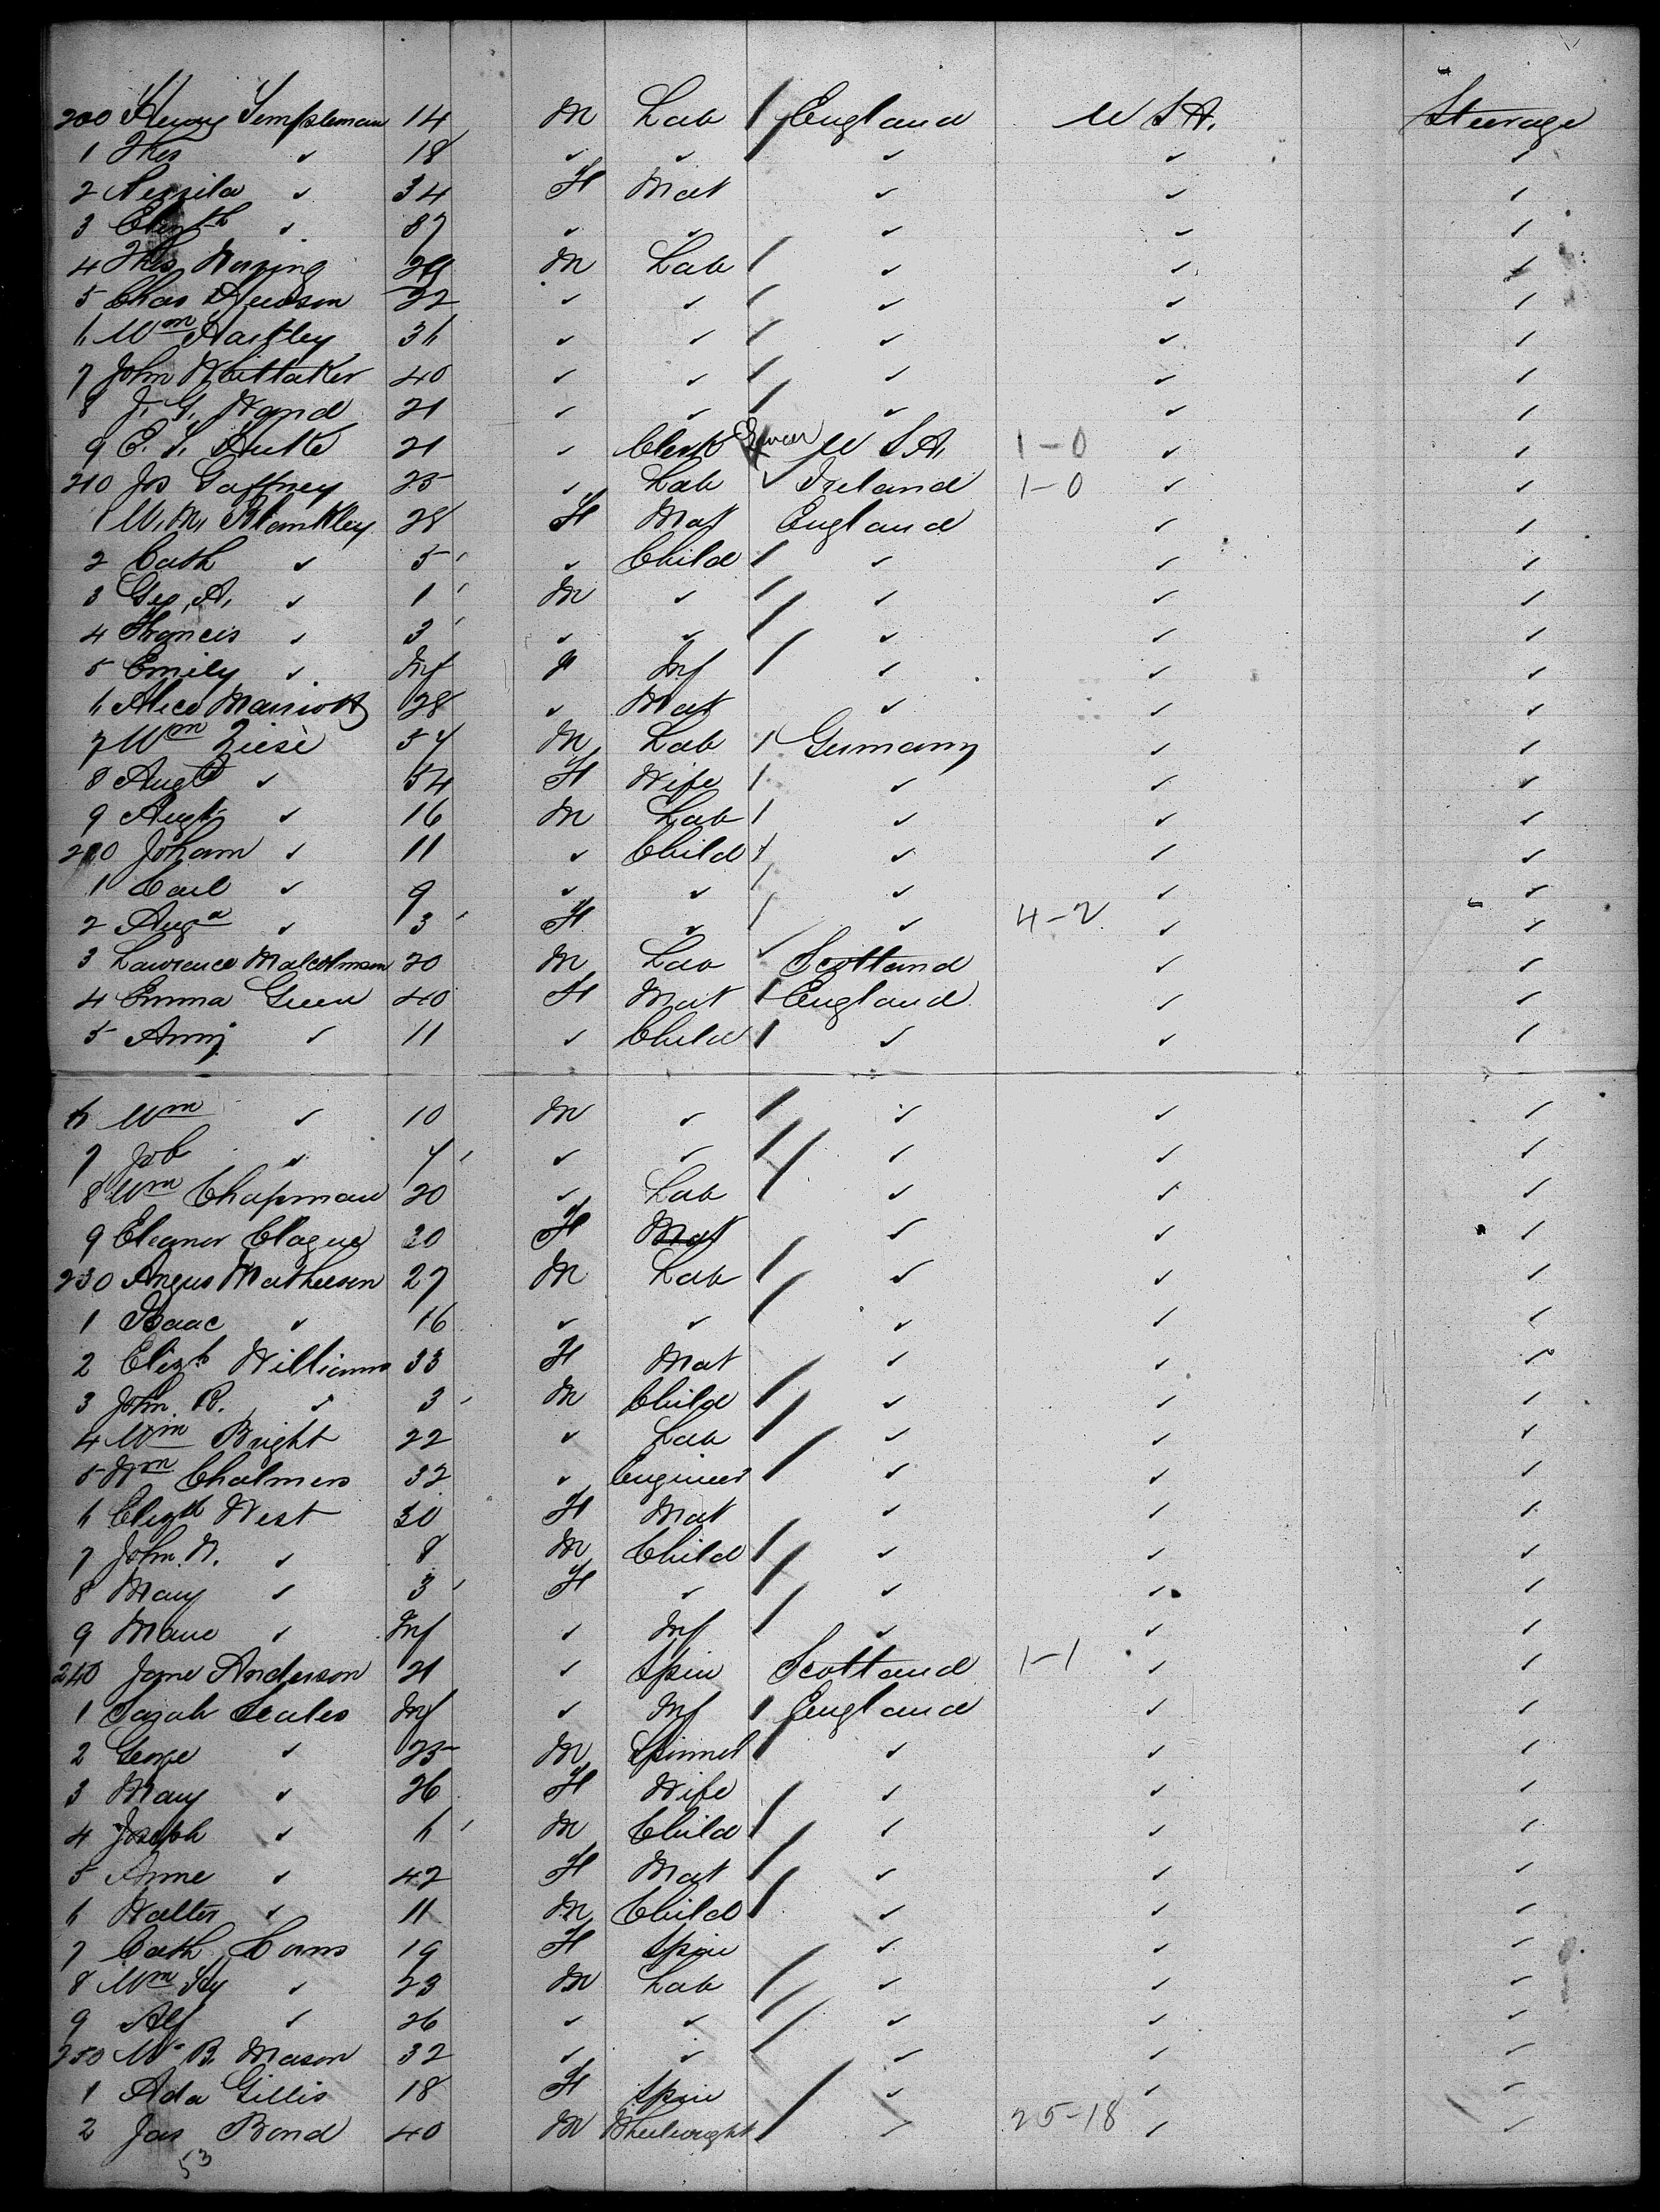 200 Henry Templeman 14 M Lab England U S A. Steerage
1 Thos ✓ 18 ✓ ✓ ✓ ✓ ✓
2 ✓ 34 F Mat ✓ ✓ ✓
3 Elizth ✓ 37 ✓ ✓ ✓ ✓ ✓
4 Thos 29 M Lab ✓ ✓ ✓
5 Chas Hewson 22 ✓ ✓ ✓ ✓ ✓
6 Wm Hartley 36 ✓ ✓ ✓ ✓ ✓
7 John Whittaker 40 ✓ ✓ ✓ ✓ ✓
8 J. G. Wand 21 ✓ ✓ ✓ ✓ ✓
9 E. S. 21 ✓ Clerk U S A. 1-0 ✓ ✓
210 Jos Gaffney 25 ✓ Lab Ireland 1-0 ✓ ✓
1 W. M. Blankley 28 F Mat England ✓ ✓
2 Cath ✓ 5 ✓ Child ✓ ✓ ✓
3 Geo, A. ✓ 1 M ✓ ✓ ✓ ✓
4 Francis ✓ 3 ✓ ✓ ✓ ✓ ✓
5 Emily ✓ Inf F Inf ✓ ✓ ✓
6 Alice Marriott 28 ✓ Mat ✓ ✓ ✓
7 Wm Ziese 57 M Lab Germany ✓ ✓
8 Augt ✓ 54 F Wife ✓ ✓ ✓
9 Augt ✓ 16 M Lab ✓ ✓ ✓
220 Joham ✓ 11 ✓ Child ✓ ✓ ✓
1 Carl ✓ 9 ✓ ✓ ✓ ✓ ✓
2 Auga ✓ 3 F ✓ ✓ 4-2 ✓ ✓
3 Lawrence Malcolmson 20 M Lab Scotland ✓ ✓
4 Emma Green 40 F Mat England ✓ ✓
5 Anny ✓ 11 ✓ Child ✓ ✓ ✓
6 Wm ✓ 10 M ✓ ✓ ✓ ✓
7 Job ✓ 7 ✓ ✓ ✓ ✓ ✓
8 Wm Chapman 20 ✓ Lab ✓ ✓ ✓
9 Eleanor Clague 20 F Mat ✓ ✓ ✓
230 Angus Matheson 27 M Lab ✓ ✓ ✓
1 Isaac ✓ 16 ✓ ✓ ✓ ✓ ✓
2 Elizth Williams 33 F Mat ✓ ✓ ✓
3 John R. ✓ 3 M Child ✓ ✓ ✓
4 Wm Bright 22 ✓ Lab ✓ ✓ ✓
5 Wm Chalmers 32 ✓ Engineer ✓ ✓ ✓
6 Elizth West 30 F Mat ✓ ✓ ✓
7 John. W. ✓ 8 M Child ✓ ✓ ✓
8 Mary ✓ 3 F ✓ ✓ ✓ ✓
9 ✓ Inf ✓ Inf ✓ ✓ ✓
240 Jane Anderson 21 ✓ Spin Scotland 1-1 ✓ ✓
1 Sarah Scales Inf ✓ Inf England ✓ ✓
2 George ✓ 25 M ✓ ✓ ✓
3 Mary ✓ 26 F Wife ✓ ✓ ✓
4 Joseph ✓ 6 M Child ✓ ✓ ✓
5 Anne ✓ 42 F Mat ✓ ✓ ✓
6 Walter ✓ 11 M Child ✓ ✓ ✓
7 Cath 19 F Spin ✓ ✓ ✓
8 Wm Hy ✓ 23 M Lab ✓ ✓ ✓
9 Alf ✓ 26 ✓ ✓ ✓ ✓ ✓
250 Wm B. Mason 32 ✓ ✓ ✓ ✓ ✓
1 Ada Gillis 18 F Spin ✓ ✓ ✓
2 Jas Bond 40 M Wheelwright ✓ 25-18 ✓ ✓
53